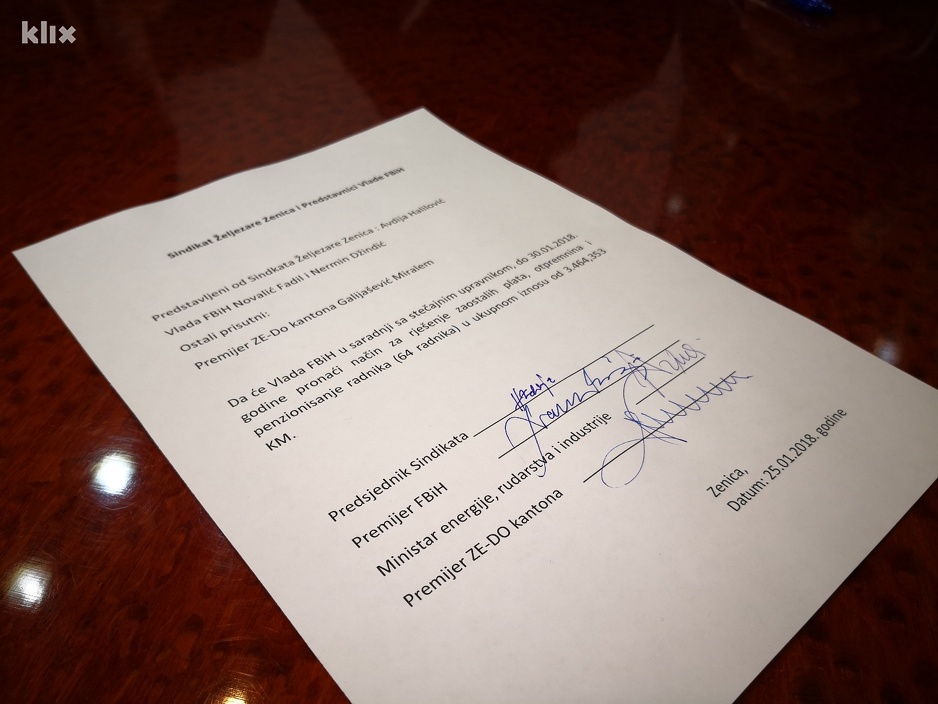 klix
Sindikat Željezare Zenica i Predstavnici Vlade FBIH
Predstavljeni od Sindkata Željezare Zenica : Avdija Halilović
Vlada FBIH Novalić Fadil i Nermin Džindić
Ostali prisutni:
Premijer ZE-Do kantona Galijašević Miralem
Da će Vlada FBiH u saradnji sa stečajnim upravnikom, do 30.01.2018.
godine pronaći način za rješenje zaostalih plata, otpremnina i
penzionisanje radnika (64 radnika) u ukupnom iznosu od 3.464,353
KM.
Predsjednik Sindikata
Premijer FBiH
Ministar energije, rudarstva i industrije
Premijer ZE-DO kantona
Zenica,
Datum: 25.01.2018. godine